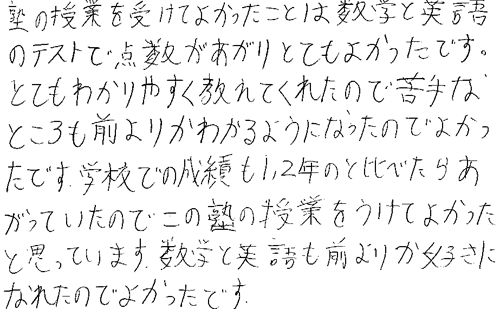 塾の授業を受けてよかったことは数学と英語
のテストで点数があがりとてもよかったです。
とてもわかりやすく教れてくれたので苦手な
ところも前よりかわかるようになったのでよかっ
たです.学校での成績も1,2年のと比べたらあ
がっていたのでこの塾の授業をうけてよかった
と思っています.数学と英語も前よりか好きに
なれたのでよかったです.